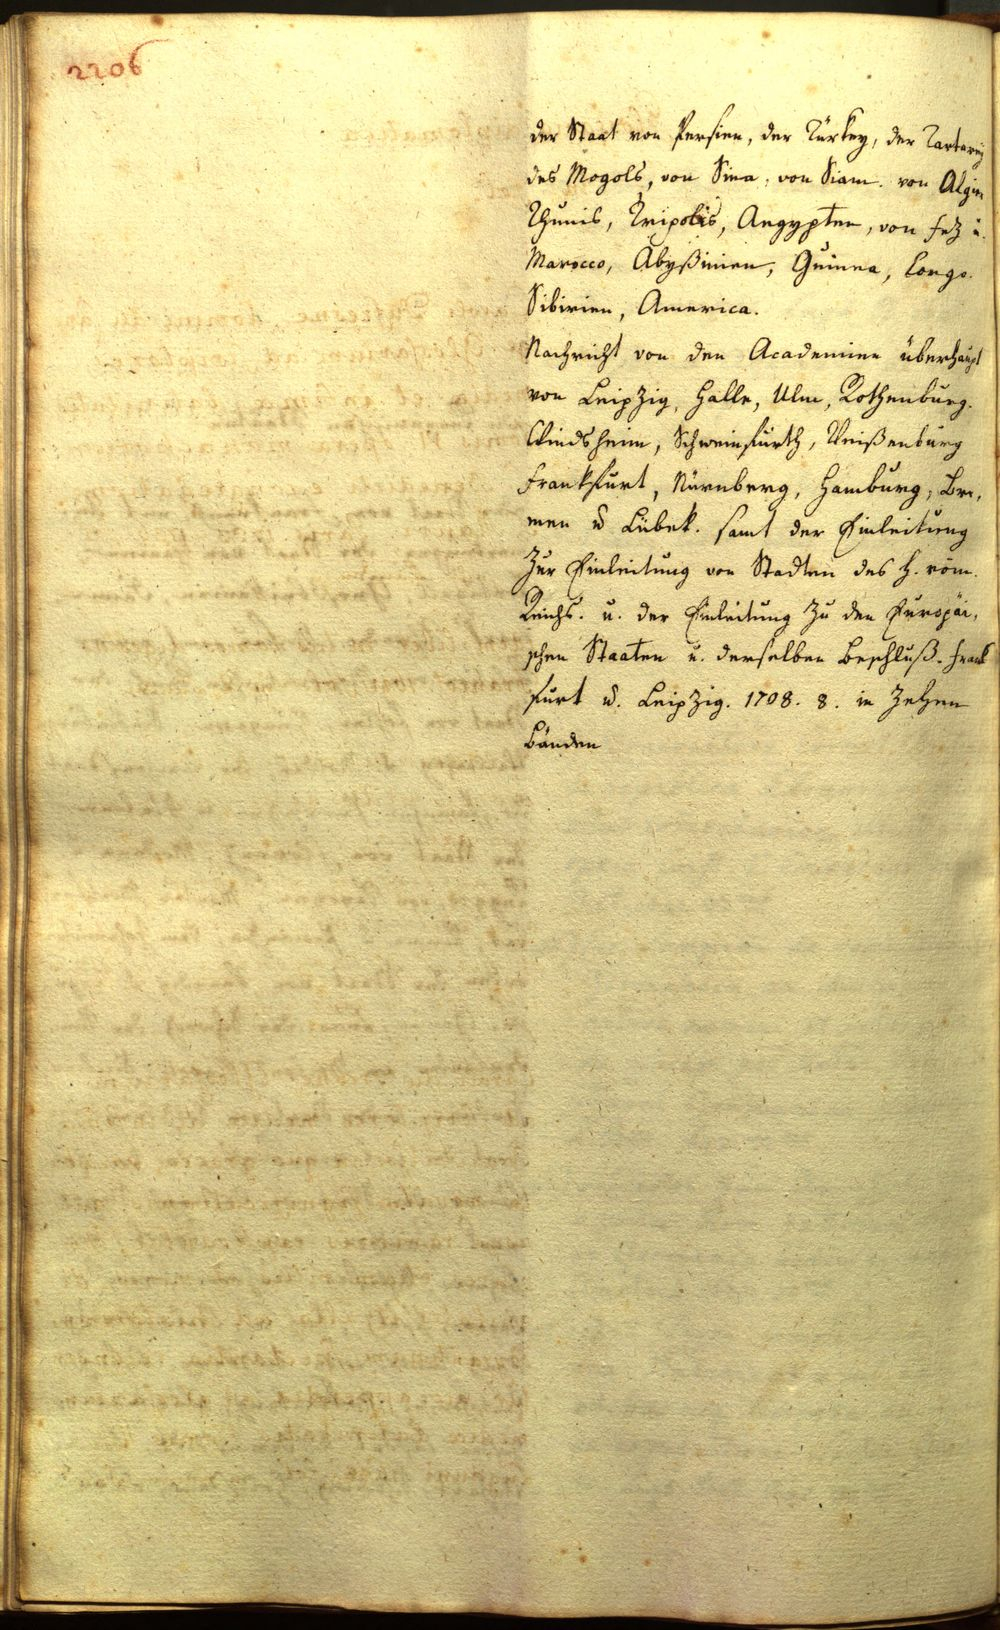 2206
der Staat von Persien, der Türkey, der Tartarey
des Mogols, von Sina, von Siam. von Algier
Thunis, Tripolis, Aegypten, von Fez u.
Marocco, Abyßinien, Guinea, Congo.
Sibirien, America.
Nachricht von den Academien überhaupt
von Leipzig, Halle, Ulm, Rothenburg.
Windsheim, Schweinfurth, Weißenburg
Frankfurt, Nürnberg, Hamburg, Bre,
men u Lübek. samt der Einleitung
Zur Einleitung von Stadten des H. röm.
Reichs. u. der Einleitung zu den Europäi,
schen Staaten u. derselben Beschluß. Frank
furt u. Leipzig. 1708. 8. in Zehen
Bänden